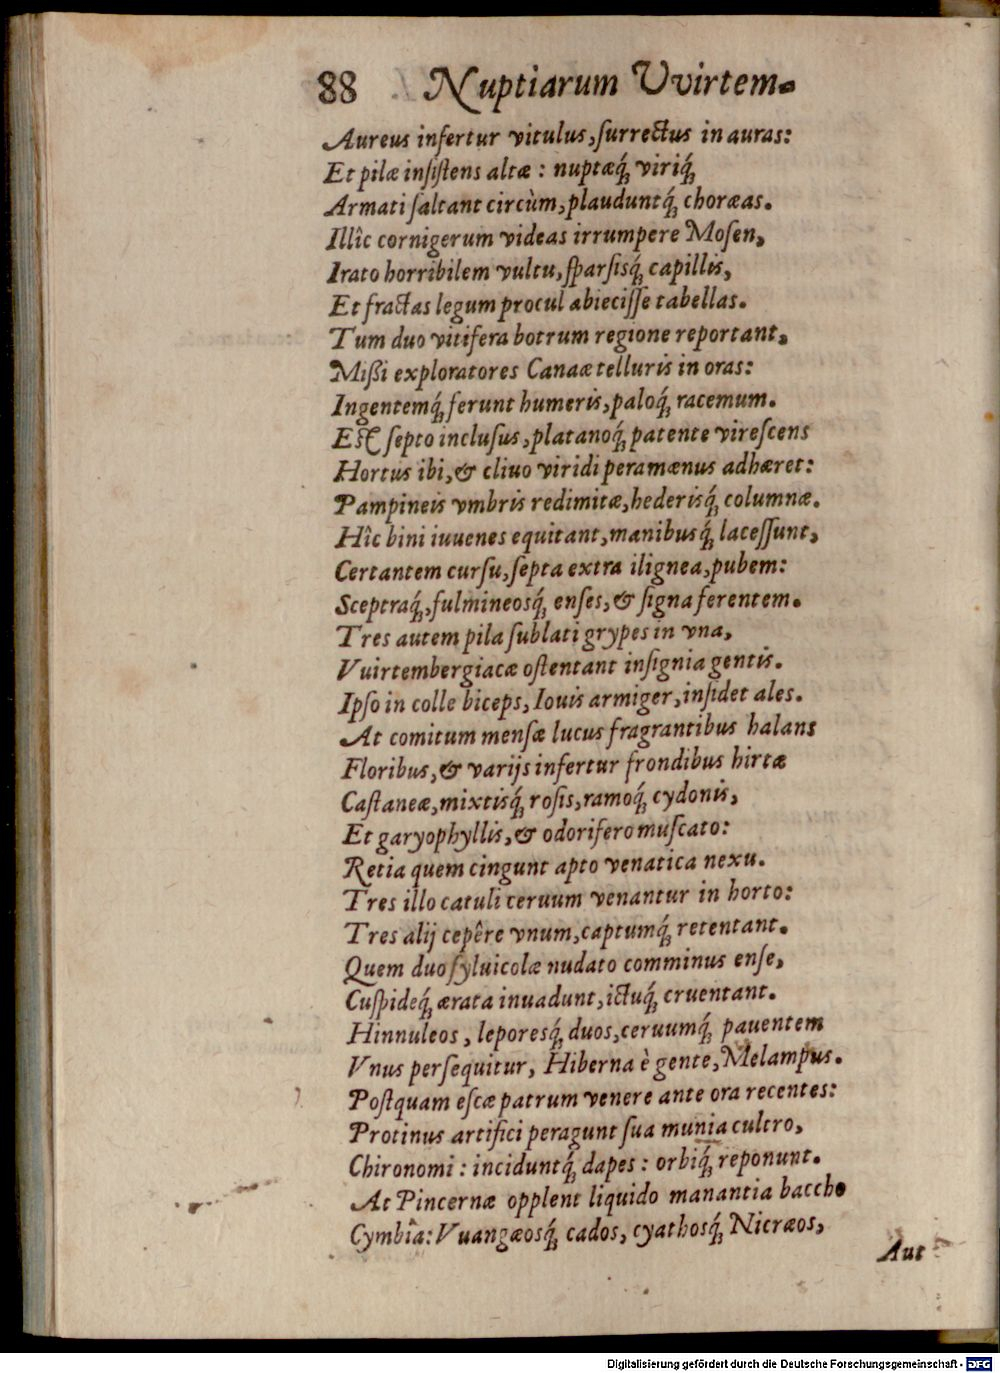 88 Nuptiarum Vvirtem.
Aureus infertur vitulus, surrectus in auras:
Et pilæ insistens altæ: nuptæq́; viriq́;
Armati saltant circùm, plauduntq́; choræas.
Illîc cornigerum videas irrumpere Mosen,
Irato horribilem vultu, sparsisq́; capillis,
Et fractas legum procul abiecisse tabellas.
Tum duo vitifera botrum regione reportant,
Mißi exploratores Canaæ telluris in oras:
Ingentemq́; ferunt humeris, paloq́; racemum.
Est septo inclusus, platanoq́; patente virescens
Hortus ibi, & cliuo viridi peramænus adhæret:
Pampineis vmbris redimitæ, hederisq́; columnæ.
Hîc bini iuuenes equitant, manibusq́; lacessunt,
Certantem cursu, septa extra ilignea, pubem:
Sceptraq́;, fulmineosq́; enses, & signa ferentem.
Tres autem pila sublati grypes in vna,
Vuirtembergiacæ ostentant insignia gentis.
Ipso in colle biceps, Iouis armiger, insidet ales.
At comitum mensæ lucus fragrantibus halans
Floribus, & varijs infertur frondibus hirtæ
Castaneæ, mixtisq́; rosis, ramoq́; cydonis,
Et garyophyllis, & odorifero muscato:
Retia quem cingunt apto venatica nexu.
Tres illo catuli ceruum venantur in horto:
Tres alij cepêre vnum, captumq́; retentant.
Quem duo syluicolæ nudato comminus ense,
Cuspideq́; ærata inuadunt, ictuq́; cruentant.
Hinnuleos, leporesq́; duos, ceruumq́; pauentem
Vnus persequitur, Hiberna è gente, Melampus.
Postquam escæ patrum venere ante ora recentes:
Protinus artifici peragunt sua munia cultro,
Chironomi: inciduntq́; dapes: orbiq́; reponunt.
At Pincernæ opplent liquido manantia baccho
Cymbia: Vuangæosq́; cados, cyathosq́; Nicræos,
Aut
Digitalisierung gefördert durch die Deutsche Forschungsgemeinschaft - DFG